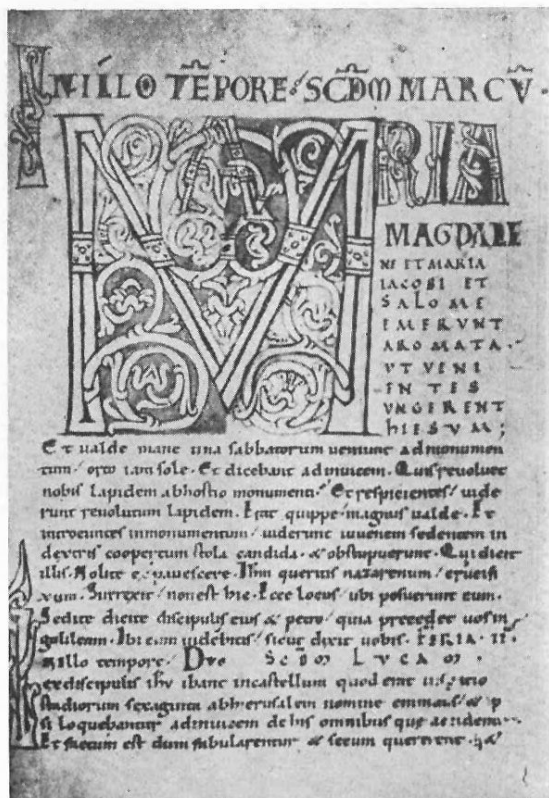 IN ILLO TĒPORE SCDM MARCŪ
MARIA
MAGDALE
NE ET MARIA
IACOBI ET
SALOME
EMERUNT
AROMATA.
VT VENI
ENTES
VNGERENT
HIESVM;
Et ualde mane una sabbatorum ueniunt ad monumen
tum / orto iam sole. Et dicebant adinuicem. Quis reuoluet
nobis lapidem ab hostio monumenti? Et respicientes / uide
runt reuolutum lapidem. Erat quippe magnus ualde. Et
introeuntes in monumentum / uiderunt iuuenem sedentem in
dextris coopertum stola candida. & obstupuerunt. Qui dicit
illis. Nolite expauescere. Ihm queritis nazarenum / crucifi
xum. Surrexit / non est hic. Ecce locus / ubi posuerunt eum.
Sed ite dicite discipulis eius & petro / quia precedet uos in
galileam. Ibi eum uidebitis / sicut dixit uobis. FERIA. II.
In illo tempore. Duo SCDM LUCAM.
ex discipulis ihu ibant in castellum quod erat in spatio
stadiorum sexaginta ab hierusalem nomine emmaus / & ip
si loquebantur adinuicem de his omnibus que acciderant
Et factum est dum fabularentur & secum quererent. &